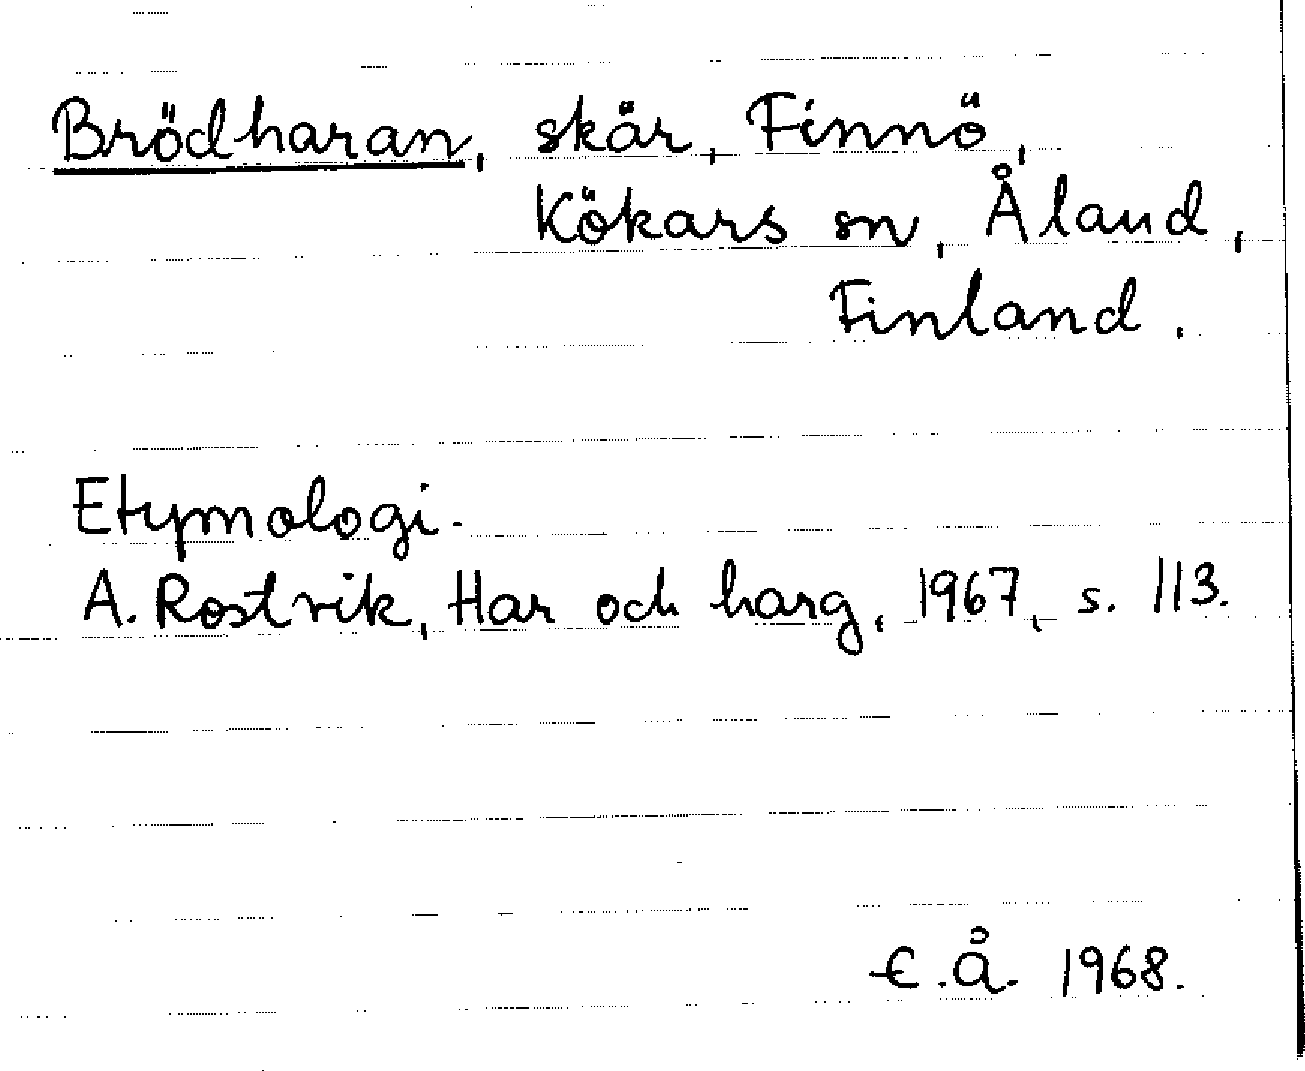 Brödharan, skär, Finnö,
Kökars sn, Åland,
Finland.
Etymologi.
A. Rostvik, Har och harg, 1967, s. 113.
E.Å. 1968.